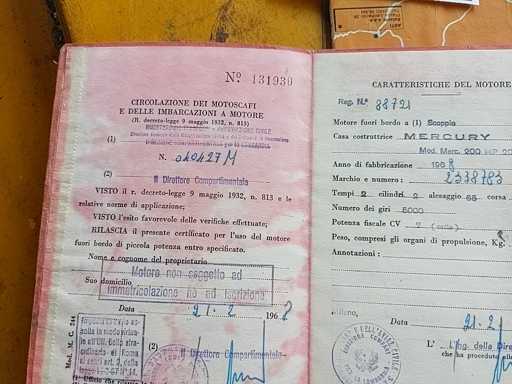 Nº 131930
CIRCOLAZIONE DEI MOTOSCAFI
E DELLE IMBARCAZIONI A MOTORE
(R. decreto-legge 9 maggio 1932, n. 813)
(1)
N. 040427M
(2) Il Direttore Compartimentale
VISTO il r. decreto-legge 9 maggio 1932, n. 813 e le
relative norme di applicazione;
VISTO l'esito favorevole delle verifiche effettuate;
RILASCIA il presente certificato per l'uso del motore
fuori bordo di piccola potenza entro specificato.
Nome e cognome del proprietario
Motore non soggetto ad
Suo domicilio
immatricolazione nè ad iscrizione
Data 21.2 1968
Il Direttore Compartimentale
Mod. M. C. 244
CARATTERISTICHE DEL MOTORE
Reg. N.º 88721
Motore fuori bordo a (1) Scoppio
Casa costruttrice MERCURY
Mod. Merc. 200 HP 20
Anno di fabbricazione 1968
Marchio e numero: 2378783
Tempi 2 cilindri 2 alesaggio 65 corsa
Numero dei giri 5000
Potenza fiscale CV 7
Peso, compresi gli organi di propulsione, Kg.
Annotazioni:
Milano,
Data 21.2
L' Ing. della Dire
che ha proceduto alle